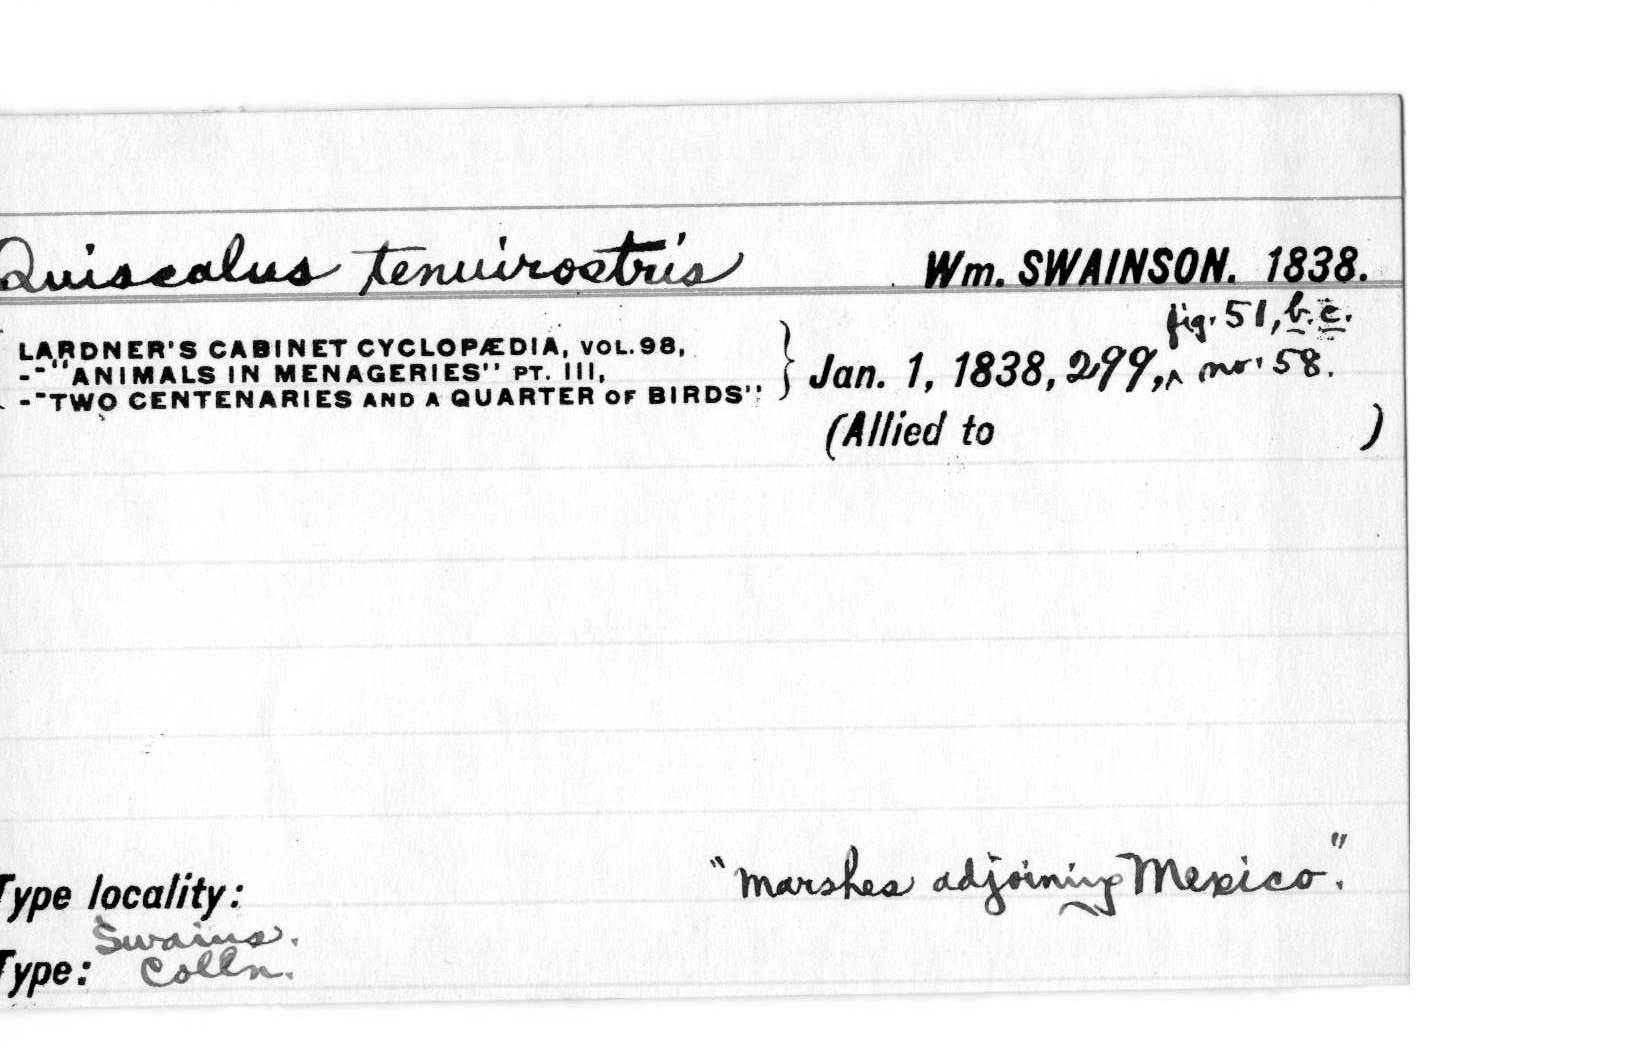 Quiscalus tenuirostris Wm. SWAINSON. 1838.
LARDNER'S CABINET CYCLOPÆDIA, VOL. 98,
--"ANIMALS IN MENAGERIES" PT. III,
--"TWO CENTENARIES AND A QUARTER OF BIRDS":
fig. 51, b. c.
Jan. 1, 1838, 299,^ no. 58.
(Allied to )
Type locality: "marshes adjoining Mexico".
Swains.
Type: Colln.